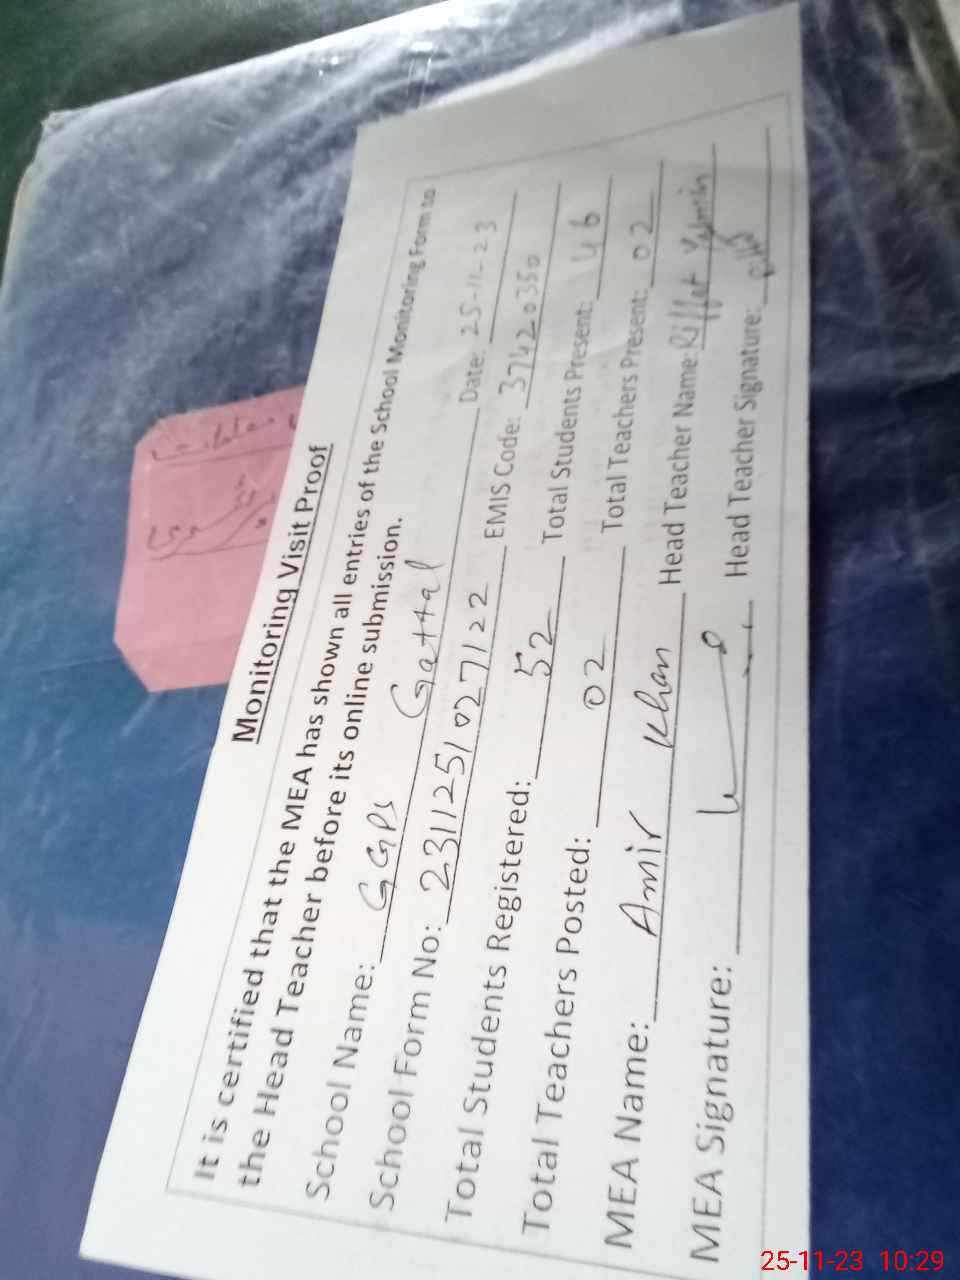 Monitoring Visit Proof
It is certified that the MEA has shown all entries of the School Monitoring Form to
the Head Teacher before its online submission.
School Name: GGPS Gattal Date: 25-11-23
School Form No: 2311251027122 EMIS Code: 37420350
Total Students Registered: 52 Total Students Present: 46
Total Teachers Posted: 02 Total Teachers Present: 02
MEA Name: Amir Khan Head Teacher Name: Riffat Yasmin
MEA Signature: Head Teacher Signature:
25-11-23 10:29